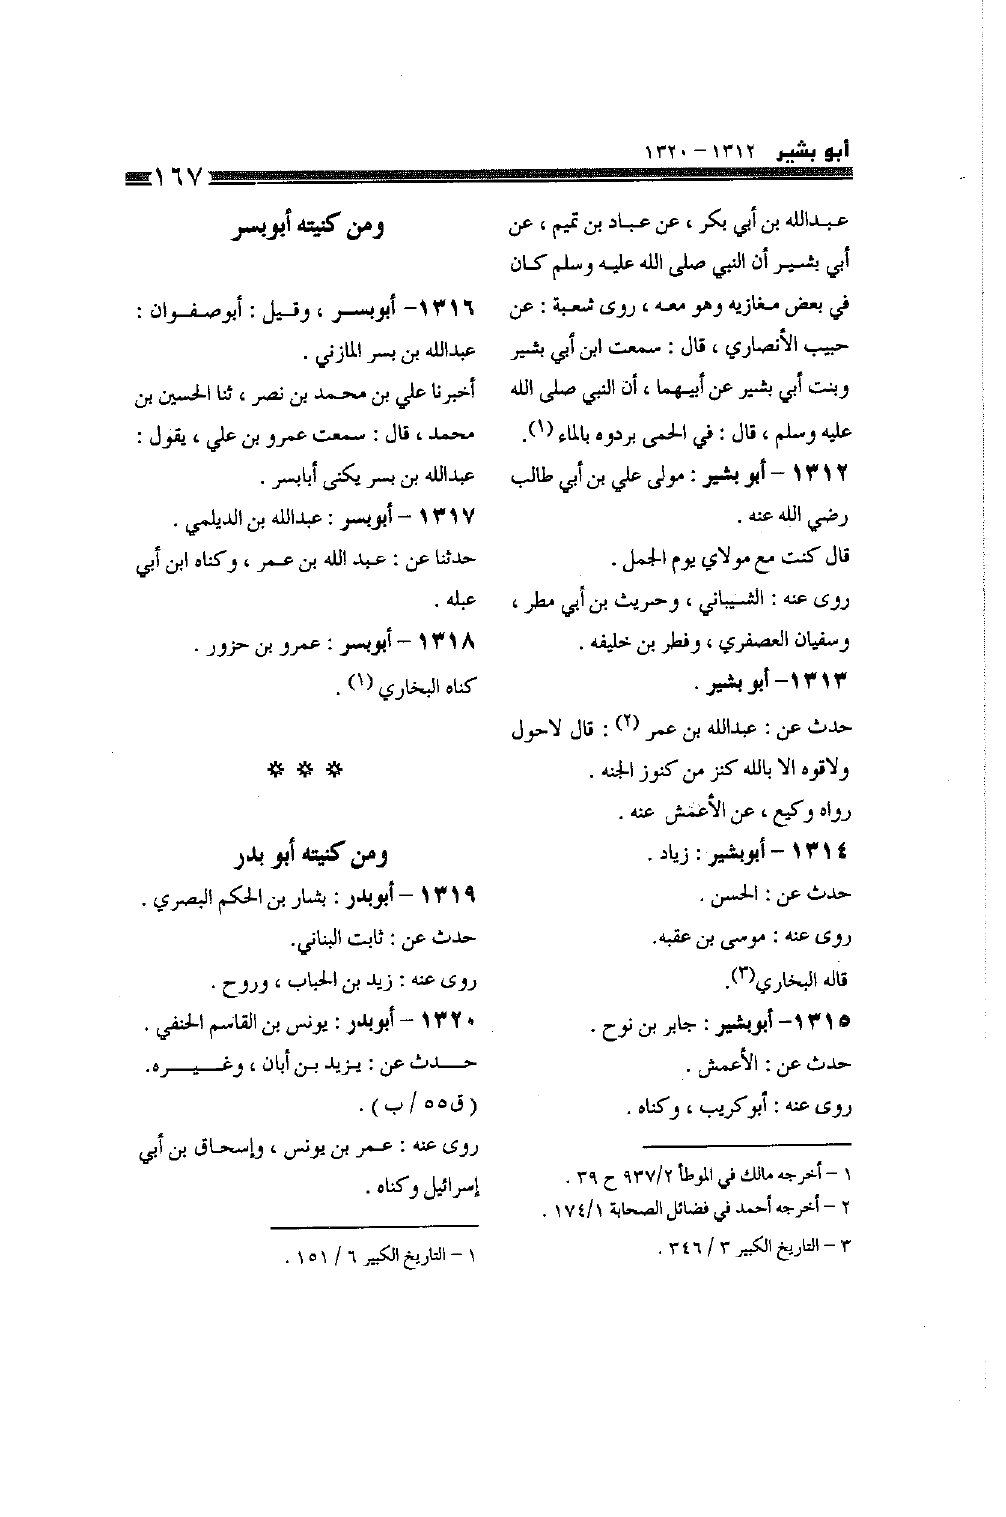 أبو بشير ١٣١٢ – ١٣٢٠
١٦٧
عبدالله بن أبي بكر ، عن عباد بن تميم ، عن
أبي بشير أن النبي صلى الله عليه وسلم كان
في بعض مغازيه وهو معه ، روى شعبة : عن
حبيب الأنصاري ، قال : سمعت ابن أبي بشير
وبنت أبي بشير عن أبيهما ، أن النبي صلى الله
عليه وسلم ، قال : في الحمى بردوه بالماء (١).
١٣١٢ – أبو بشير : مولى علي بن أبي طالب
رضي الله عنه .
قال كنت مع مولاي يوم الجمل .
روى عنه : الشيباني ، وحريث بن أبي مطر ،
وسفيان العصفري ، وفطر بن خليفه .
١٣١٣– أبو بشير .
حدث عن : عبدالله بن عمر (٢) : قال لاحول
ولاقوه الا بالله كنز من كنوز الجنه .
رواه وكيع ، عن الأعمش عنه .
١٣١٤ – أبوبشير : زياد .
حدث عن : الحسن .
روى عنه : موسى بن عقبه.
قاله البخاري(٣).
١٣١٥– أبوبشير : جابر بن نوح .
حدث عن : الأعمش .
روى عنه : أبوكريب ، وكناه .
١ – أخرجه مالك في الموطأ ٩٣٧/٢ ح ٣٩ .
٢ – أخرجه أحمد في فضائل الصحابة ١٧٤/١ .
٣ – التاريخ الكبير ٣ / ٣٤٦ .
ومن كنيته أبوبسر
١٣١٦– أبوبسر ، وقيل : أبوصفوان :
عبدالله بن بسر المازني .
أخبرنا علي بن محمد بن نصر ، ثنا الحسين بن
محمد ، قال : سمعت عمرو بن علي ، يقول :
عبدالله بن بسر يكنى أبابسر .
١٣١٧ – أبوبسر : عبدالله بن الديلمي .
حدثنا عن : عبد الله بن عمر ، وكناه ابن أبي
عبله .
١٣١٨ – أبوبسر : عمرو بن حزور .
كناه البخاري (١) .
* * *
ومن كنيته أبو بدر
١٣١٩ – أبوبدر : بشار بن الحكم البصري .
حدث عن : ثابت البناني.
روى عنه : زيد بن الحباب ، وروح .
١٣٢٠ – أبوبدر : يونس بن القاسم الحنفي .
حدث عن : يزيد بن أبان ، وغيره.
(ق٥٥ / ب) .
روى عنه : عمر بن يونس ، وإسحاق بن أبي
إسرائيل وكناه .
١ – التاريخ الكبير ٦ / ١٥١ .